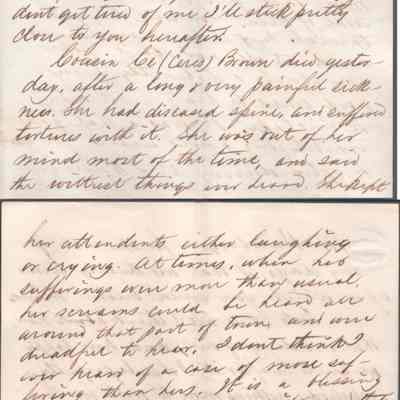 don't get tired of me I'll stick pretty
close to you hereafter.
Cousin Ce (Ceres) Brown died yester-
day, after a long & very painful sick-
ness. She had diseased spine, and suffered
tortures with it. She was out of her
mind most of the time, and said
the wittiest things ever heard. She kept
her attendents either laughing
or crying. At times, when her
sufferings were more than usual,
her screams could be heard all
around that part of town and were
dreadful to hear. I dont think I
ever heard of a case of more suf-
fering than hers. It is a blessing